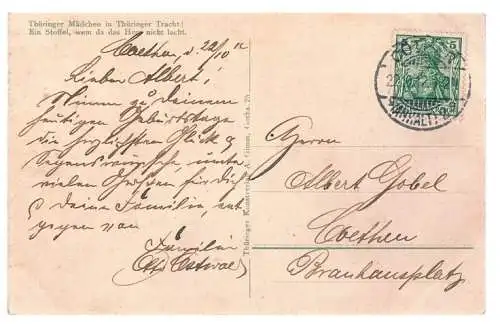 Thüringer Mädchen in Thüringer Tracht!
Ein Stoffel, wem da das Herz nicht lacht.
Coethen, d. 22/10 12
Lieber Albert!
Nimm zu Deinem
heutigen Geburtstage
die herzlichsten Glück &
Segenswünsche, unter
vielen Grüßen für Dich
& Deine Familie, ent
gegen von
Familie
Otto
Thüringer Kunstverlag Gotha. 25
5
CÖTHEN
(ANHALT)
Herrn
Albert Göbel
Coethen
Brauhausplatz